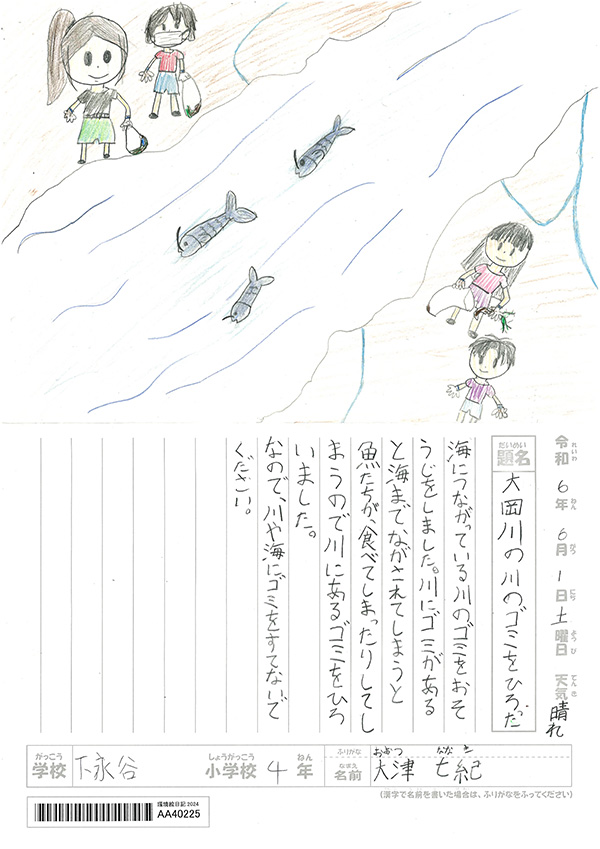 令和6年6月1日土曜日 天気晴れ
れいわ ねん がつ にち ようび てんき
だいめい
題名
大岡川の川のゴミをひろった
海につながっている川のゴミをおそ
うじをしました。川にゴミがある
と海までながされてしまうと
魚たちが、食べてしまったりしてし
まうので川にあるゴミをひろ
いました。
なので、川や海にゴミをすてないで
ください。
がっこう しょうがっこう ねん
学校 下永谷 小学校 4年
ふりがな おおつ ななき
なまえ
名前 大津 七紀
(漢字で名前を書いた場合は、ふりがなをふってください)
環境絵日記2024
AA40225